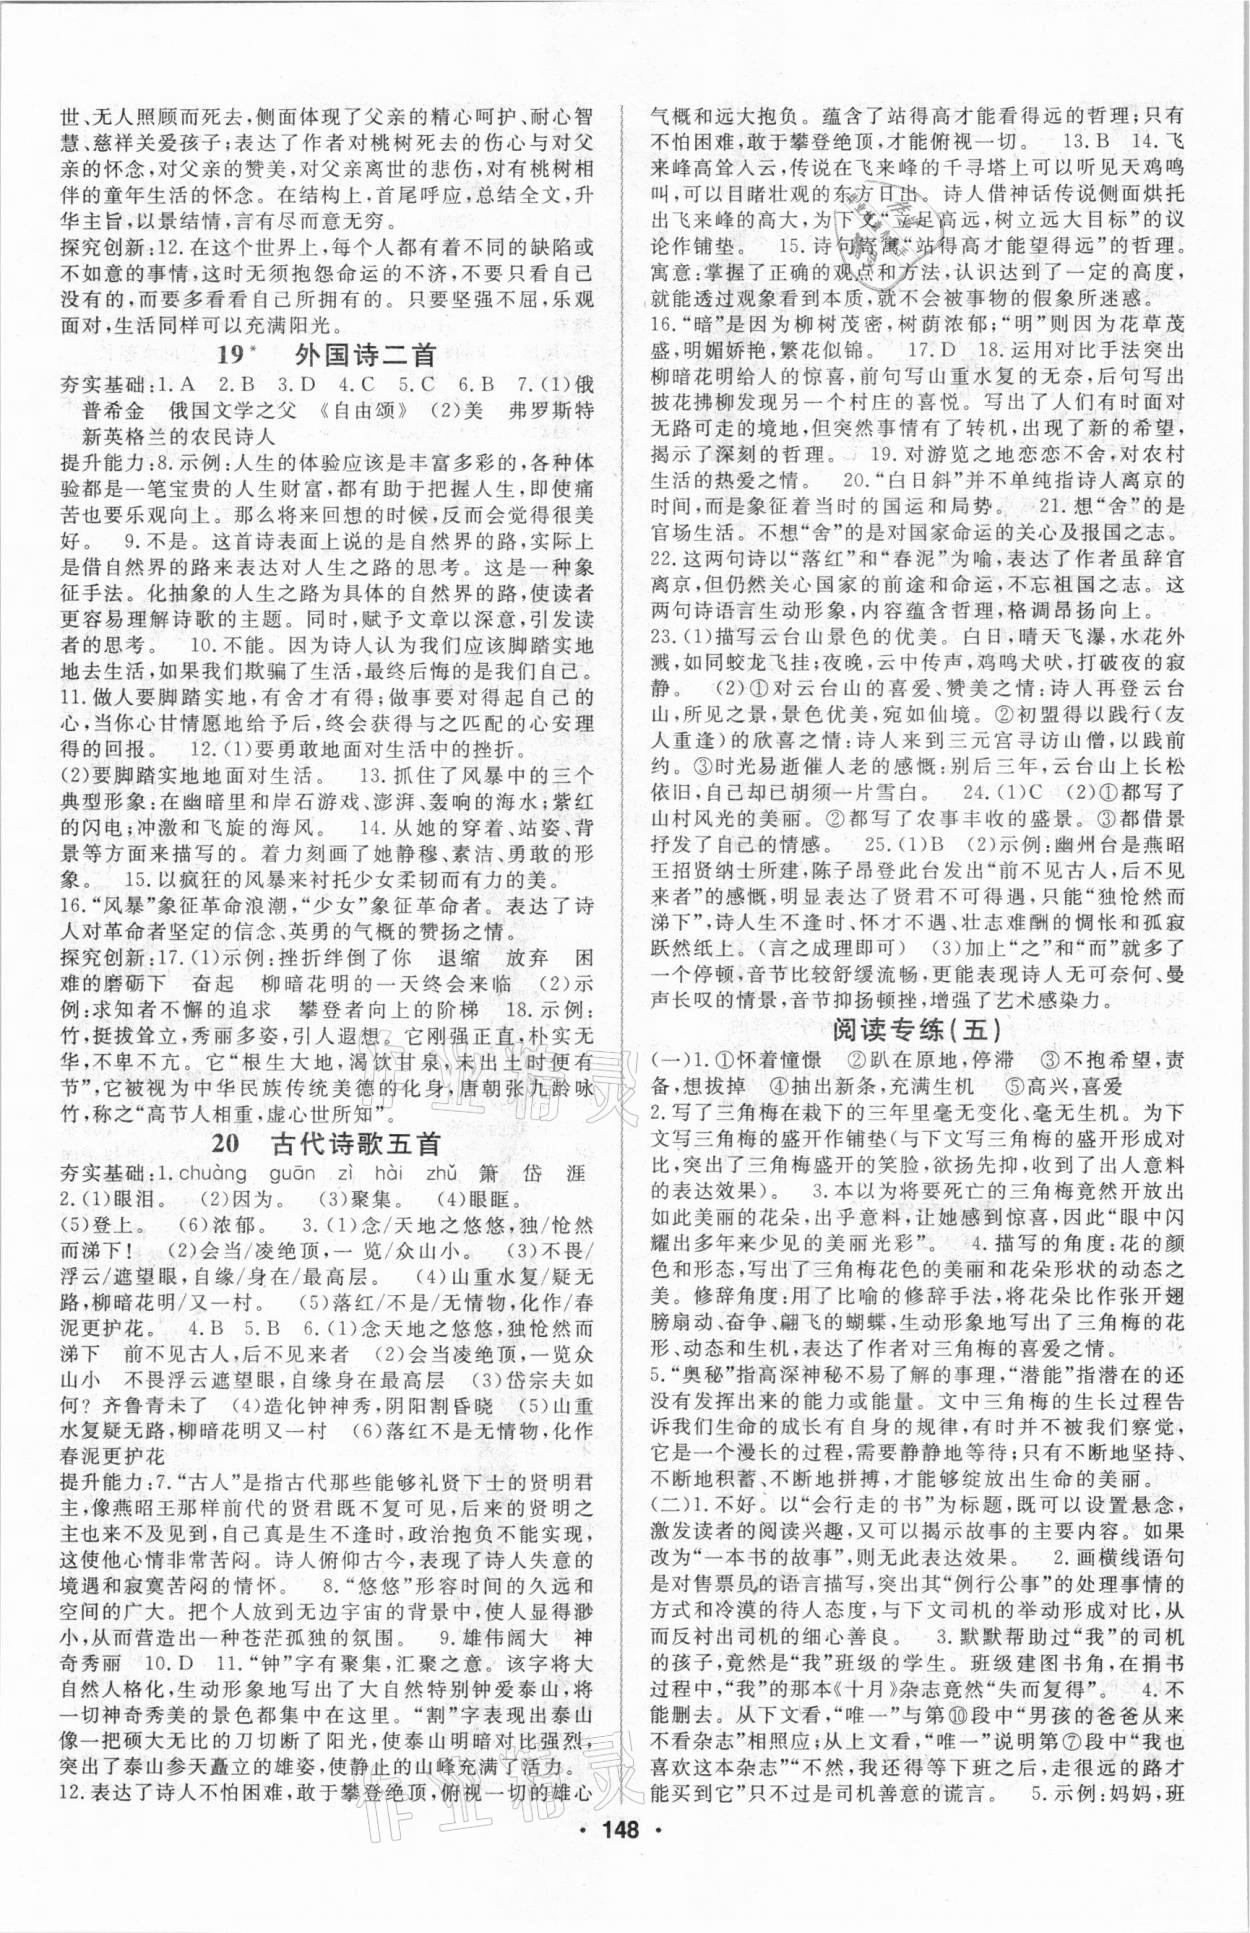 世、无人照顾而死去,侧面体现了父亲的精心呵护、耐心智
慧、慈祥关爱孩子;表达了作者对桃树死去的伤心与对父
亲的怀念,对父亲的赞美,对父亲离世的悲伤,对有桃树相
伴的童年生活的怀念。在结构上,首尾呼应,总结全文,升
华主旨,以景结情,言有尽而意无穷。
探究创新:12.在这个世界上,每个人都有着不同的缺陷或
不如意的事情,这时无须抱怨命运的不济,不要只看自己
没有的,而要多看看自己所拥有的。只要坚强不屈,乐观
面对,生活同样可以充满阳光。
19* 外国诗二首
夯实基础:1.A 2.B 3.D 4.C 5.C 6.B 7.(1)俄
普希金 俄国文学之父 《自由颂》 (2)美 弗罗斯特
新英格兰的农民诗人
提升能力:8.示例:人生的体验应该是丰富多彩的,各种体
验都是一笔宝贵的人生财富,都有助于把握人生,即使痛
苦也要乐观向上。那么将来回想的时候,反而会觉得很美
好。 9.不是。这首诗表面上说的是自然界的路,实际上
是借自然界的路来表达对人生之路的思考。这是一种象
征手法。化抽象的人生之路为具体的自然界的路,使读者
更容易理解诗歌的主题。同时,赋予文章以深意,引发读
者的思考。 10.不能。因为诗人认为我们应该脚踏实地
地去生活,如果我们欺骗了生活,最终后悔的是我们自己。
11.做人要脚踏实地,有舍才有得;做事要对得起自己的
心,当你心甘情愿地给予后,终会获得与之匹配的心安理
得的回报。 12.(1)要勇敢地面对生活中的挫折。
(2)要脚踏实地地面对生活。 13.抓住了风暴中的三个
典型形象:在幽暗里和岸石游戏、澎湃、轰响的海水;紫红
的闪电;冲激和飞旋的海风。 14.从她的穿着、站姿、背
景等方面来描写的。着力刻画了她静穆、素洁、勇敢的形
象。 15.以疯狂的风暴来衬托少女柔韧而有力的美。
16.“风暴”象征革命浪潮,“少女”象征革命者。表达了诗
人对革命者坚定的信念、英勇的气概的赞扬之情。
探究创新:17.(1)示例:挫折绊倒了你 退缩 放弃 困
难的磨砺下 奋起 柳暗花明的一天终会来临 (2)示
例:求知者不懈的追求 攀登者向上的阶梯 18.示例:
竹,挺拔耸立,秀丽多姿,引人遐想。它刚强正直,朴实无
华,不卑不亢。它“根生大地,渴饮甘泉,未出土时便有
节”,它被视为中华民族传统美德的化身,唐朝张九龄咏
竹,称之“高节人相重,虚心世所知”。
20 古代诗歌五首
夯实基础:1.chuàng guān zì hài zhǔ 箫 岱 涯
2.(1)眼泪。 (2)因为。 (3)聚集。 (4)眼眶。
(5)登上。 (6)浓郁。 3.(1)念/天地之悠悠,独/怆然
而涕下! (2)会当/凌绝顶,一 览/众山小。 (3)不畏/
浮云/遮望眼,自缘/身在/最高层。 (4)山重水复/疑无
路,柳暗花明/又一村。 (5)落红/不是/无情物,化作/春
泥更护花。 4.B 5.B 6.(1)念天地之悠悠,独怆然而
涕下 前不见古人,后不见来者 (2)会当凌绝顶,一览众
山小 不畏浮云遮望眼,自缘身在最高层 (3)岱宗夫如
何? 齐鲁青未了 (4)造化钟神秀,阴阳割昏晓 (5)山重
水复疑无路,柳暗花明又一村 (6)落红不是无情物,化作
春泥更护花
提升能力:7.“古人”是指古代那些能够礼贤下士的贤明君
主,像燕昭王那样前代的贤君既不复可见,后来的贤明之
主也来不及见到,自己真是生不逢时,政治抱负不能实现,
这使他心情非常苦闷。诗人俯仰古今,表达了诗人失意的
境遇和寂寞苦闷的情怀。 8.“悠悠”形容时间的久远和
空间的广大。把个人放到无边宇宙的背景中,使人显得渺
小,从而营造出一种苍茫孤独的氛围。 9.雄伟阔大 神
奇秀丽 10.D 11.“钟”字有聚集,汇聚之意。该字将大
自然人格化,生动形象地写出了大自然特别钟爱泰山,将
一切神奇秀美的景色都集中在这里。“割”字表现出泰山
像一把硕大无比的刀切断了阳光,使泰山明暗对比强烈,
突出了泰山参天矗立的雄姿,使静止的山峰充满了活力。
12.表达了诗人不怕困难,敢于攀登绝顶,俯视一切的雄心
气概和远大抱负。蕴含了站得高才能看得远的哲理;只有
不怕困难,敢于攀登绝顶,才能俯视一切。 13.B 14.飞
来峰高耸入云,传说在飞来峰的千寻塔上可以听见天鸡鸣
叫,可以目睹壮观的东方日出。诗人借神话传说侧面烘托
出飞来峰的高大,为下文“立足高远,树立远大目标”的议
论作铺垫。 15.诗句寄寓“站得高才能望得远”的哲理。
寓意:掌握了正确的观点和方法,认识达到了一定的高度,
就能透过现象看到本质,就不会被事物的假象所迷惑。
16.“暗”是因为柳树茂密,树荫浓郁;“明”则因为花草茂
盛,明媚娇艳,繁花似锦。 17.D 18.运用对比手法突出
柳暗花明给人的惊喜,前句写山重水复的无奈,后句写出
披花拂柳发现另一个村庄的喜悦。写出了人们有时面对
无路可走的境地,但突然事情有了转机,出现了新的希望,
揭示了深刻的哲理。 19.对游览之地恋恋不舍,对农村
生活的热爱之情。 20.“白日斜”并不单纯指诗人离京的
时间,而是象征着当时的国运和局势。 21.想“舍”的是
官场生活。不想“舍”的是对国家命运的关心及报国之志。
22.这两句诗以“落红”和“春泥”为喻,表达了作者虽辞官
离京,但仍然关心国家的前途和命运,不忘祖国之志。这
两句诗语言生动形象,内容蕴含哲理,格调昂扬向上。
23.(1)描写云台山景色的优美。白日,晴天飞瀑,水花外
溅,如同蛟龙飞挂;夜晚,云中传声,鸡鸣犬吠,打破夜的寂
静。 (2)①对云台山的喜爱、赞美之情:诗人再登云台
山,所见之景,景色优美,宛如仙境。②初盟得以践行(友
人重逢)的欣喜之情:诗人来到三元宫寻访山僧,以践前
约。③时光易逝催人老的感慨:别后三年,云台山上长松
依旧,自己却已胡须一片雪白。 24.(1)C (2)①都写了
山村风光的美丽。②都写了农事丰收的盛景。③都借景
抒发了自己的情感。 25.(1)B (2)示例:幽州台是燕昭
王招贤纳士所建,陈子昂登此台发出“前不见古人,后不见
来者”的感慨,明显表达了贤君不可得遇,只能“独怆然而
涕下”,诗人生不逢时、怀才不遇、壮志难酬的惆怅和孤寂
跃然纸上。(言之成理即可) (3)加上“之”和“而”就多了
一个停顿,音节比较舒缓流畅,更能表现诗人无可奈何、曼
声长叹的情景,音节抑扬顿挫,增强了艺术感染力。
阅读专练(五)
(一)1.①怀着憧憬 ②趴在原地,停滞 ③不抱希望,责
备,想拔掉 ④抽出新条,充满生机 ⑤高兴,喜爱
2.写了三角梅在栽下的三年里毫无变化、毫无生机。为下
文写三角梅的盛开作铺垫(与下文写三角梅的盛开形成对
比),突出了三角梅盛开的笑脸,欲扬先抑,收到了出人意料
的表达效果)。 3.本以为将要死亡的三角梅竟然开放出
如此美丽的花朵,出乎意料,让她感到惊喜,因此“眼中闪
耀出多年来少见的美丽光彩”。 4.描写的角度:花的颜
色和形态,写出了三角梅花色的美丽和花朵形状的动态之
美。修辞角度:用了比喻的修辞手法,将花朵比作张开翅
膀扇动、奋争、翩飞的蝴蝶,生动形象地写出了三角梅的花
形、动态和生机,表达了作者对三角梅的喜爱之情。
5.“奥秘”指高深神秘不易了解的事理,“潜能”指潜在的还
没有发挥出来的能力或能量。文中三角梅的生长过程告
诉我们生命的成长有自身的规律,有时并不被我们察觉,
它是一个漫长的过程,需要静静地等待;只有不断地坚持、
不断地积蓄、不断地拼搏,才能够绽放出生命的美丽。
(二)1.不好。以“会行走的书”为标题,既可以设置悬念,
激发读者的阅读兴趣,又可以揭示故事的主要内容。如果
改为“一本书的故事”,则无此表达效果。 2.画横线语句
是对售票员的语言描写,突出其“例行公事”的处理事情的
方式和冷漠的待人态度,与下文司机的举动形成对比,从
而反衬出司机的细心善良。 3.默默帮助过“我”的司机
的孩子,竟然是“我”班级的学生。班级建图书角,在捐书
过程中,“我”的那本《十月》杂志竟然“失而复得”。 4.不
能删去。从下文看,“唯一”与第⑩段中“男孩的爸爸从来
不看杂志”相照应;从上文看,“唯一”说明第⑦段中“我也
喜欢这本杂志”“不然,我还得等下班之后,走很远的路才
能买到它”只不过是司机善意的谎言。 5.示例:妈妈,班
· 148 ·
作业精灵
作业精灵